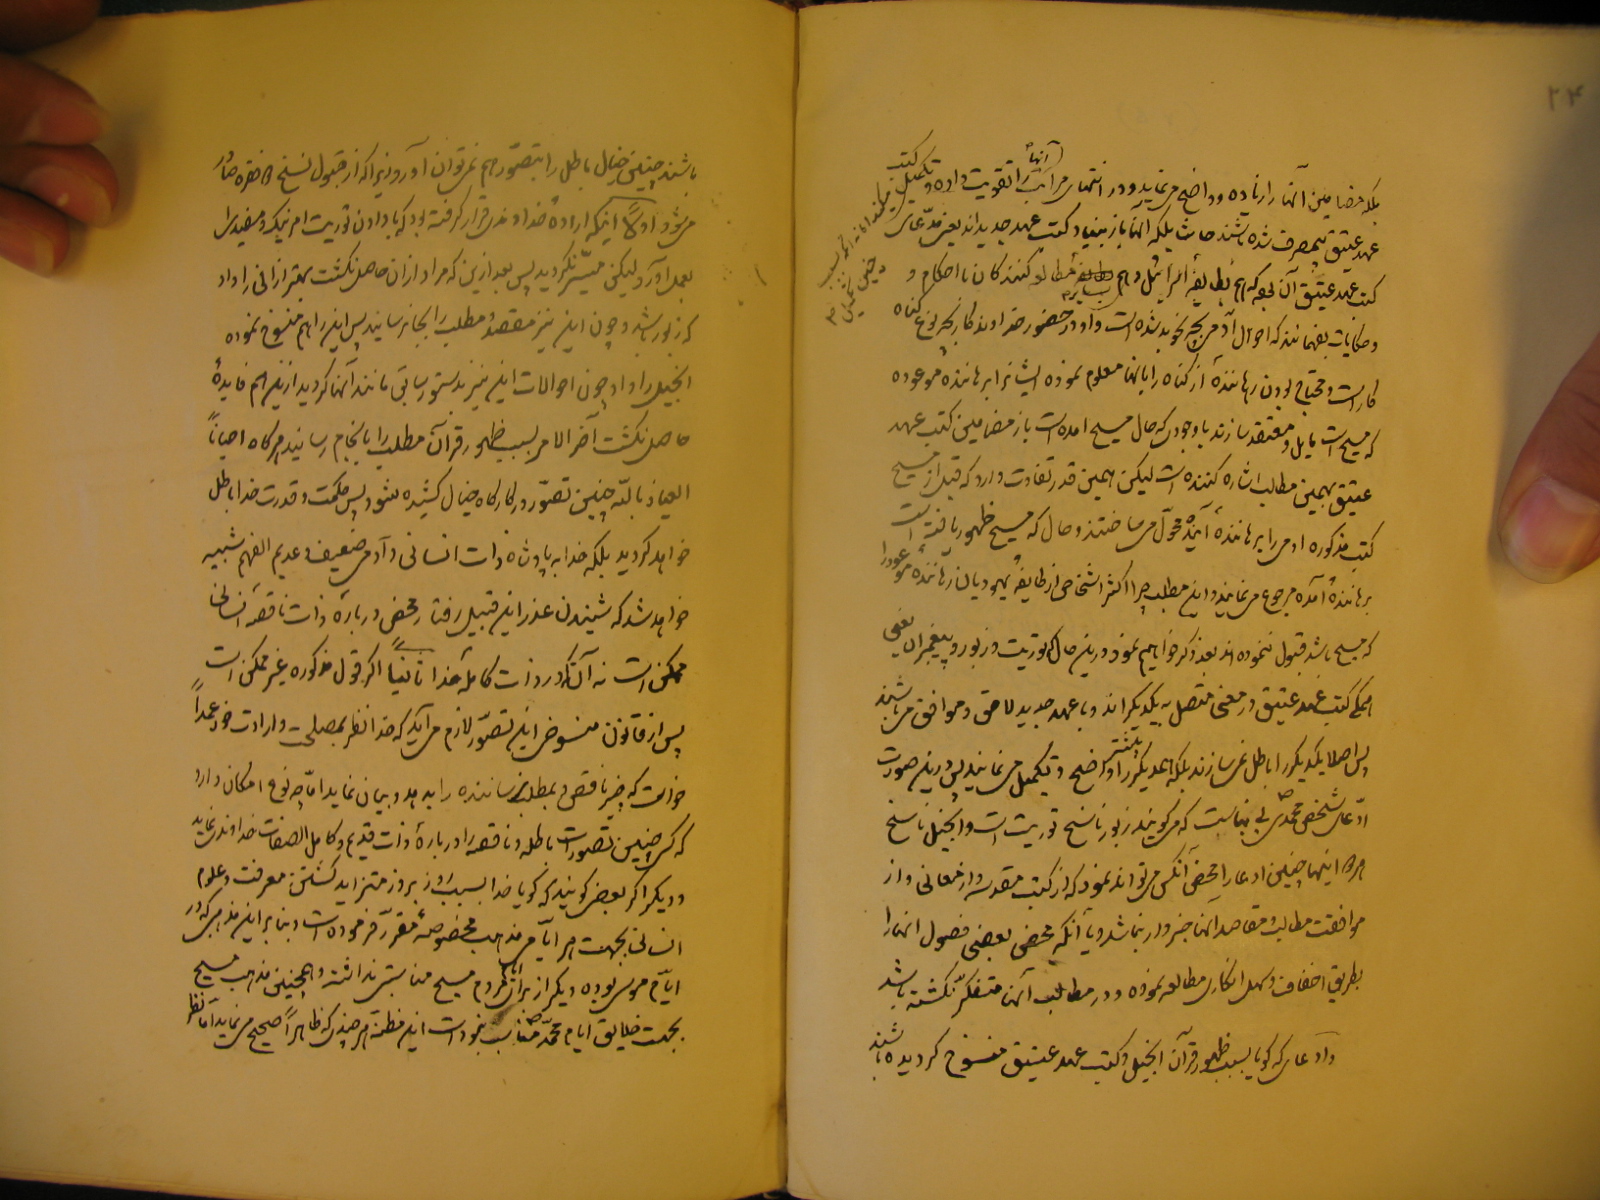 ۲۴
بلکه مضامین آنها را زیاده و واضح می نماید و در انتهای مراتب آنها را تقویت داده و تکمیل
عهد عتیق بیمصرف شده باشند حاشا بلکه آنها باز بنیاد کتب عهد جدید اند یعنی مدّعای
کتب عهد عتیق آن بود که هم بطایفهٔ اسرائیل و هم بسایر مطالعه کنندکان با احکام و
و حکایات بفهمانند که احوال آدمی بچه نحو بد شده است و او در حضور خداوند کار بچه نوع کناه
کار است و محتاج بودن رهانندهٔ از کناه را بآنها معلوم نموده ایشانرا برهانندهٔ موعوده
که مسیح است مایل و معتقد سازند با وجودی که حال مسیح آمده است باز مضامین کتب عهد
عتیق بهمین مطالب اشاره کننده است لیکن همین قدر تفاوت دارد که قبل از مسیح
کتب مذکوره آدمی را برهانندهٔ آینده محوّل می ساختند و حال که مسیح ظهور یافته است
برهانندهٔ آمده مرجوع می نمایند و این مطلب چرا اکثر اشخاص از طایفهٔ یهودیان رهانندهٔ موعود را
که مسیح باشد قبول ننموده اند بعد ذکر خواهیم نمود در این حال که توریت و زبور و پیغمبران یعنی
همکی کتب عهد عتیق در معنی متصل به یکدیکر اند و با عهد جدید لاحق و موافق می باشند
پس اصلا یکدیکر را باطل نمی سازند بلکه یکدیکر را بیشتر واضح و تکمیل می نمایند پس در این صورت
ادّعای شخص محمدی بی بنیاست که می کویند زبور ناسخ توریت است و انجیل ناسخ
هر دو اینها چنین ادعا را محض آنکس می تواند نمود که از کتب مقدسه و از معانی و از
موافقت مطالب و مقاصد آنها خبردار نباشد و یا آنکه محض بعضی فصول آنها را
بطریق اخفاف و سهل انکاری مطالعه نموده و در مطالب آنها متفکّر نکشته باشد
و ادّعای که کویا بسبب ظهور قرآن انجیل و کتب عهد عتیق منسوخ کردیده باشند
باشند چنین خیال باطل را بتصوّر هم نمی توان آورد زیرا که از قبول نسخ دو فقره صادر
می شود اولاً اینکه ارادهٔ خداوندی قرار کرفته بود که با دادن توریت امر نیک و مفیدی را
بعمل آورد لیکن میسّر نکردید پس بعد ازین که مراد از آن حاصل نکشت بهتر از آنی را داد
که زبور باشد و چون این نیز مقصد و مطلب را بجا نرسانید پس این را هم منسوخ نموده
انجیل را داد و چون احوالات این نیز بدستور سابق مانند آنها کردید از این هم فایدهٔ
حاصل نکشت آخر الامر بسبب ظهور قرآن مطلب را بانجام رسانید هر کاه احیاناً
العیاذ بالله چنین تصوّر در کارکاه خیال کشیده شود پس حکمت و قدرت خدا باطل
خواهد کردید بلکه خدا به پادشاه ذات انسانی و آدمی ضعیف و عدیم الفهم شبیه
خواهد شد که شنیدن عذر این قبیل رفتار محض دربارهٔ ذات ناقصهٔ انسانی
ممکن است نه آنکه در ذات کاملهٔ خدا ثانیاً اکر قول مذکوره غیر ممکن است
پس از قانون منسوخی این تصوّر لازم می آید که خدا نظر بمصلحت و ارادت خود عمداً
خواست که چیز ناقص و بمطلب نرساننده را بدهد و بیان نماید امّا چه نوع امکان دارد
که کسی چنین تصورات باطله و ناقصه را دربارهٔ ذات قدیم و کامل الصفات خداوند نماید
و دیکر اکر بعضی کویند که کویا خدا بسبب روز بروز متزاید کشتن معرفت و علوم
انسانی بجهت هر ایّامی مذهب مخصوصهٔ مقرّر فرموده است و بنا بر این مذهبی که در
ایّام موسی بوده دیکر از برای مردم ایّام مسیح مناسبتی نداشته و همچنین مذهب مسیح
بجهت خلایق ایام محمّد مناسب نبوده است این مظنّه هر چند که ظاهراً صحیح می نماید امّا نظر